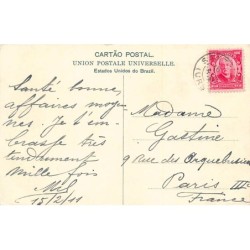 CARTÃO POSTAL.
UNION POSTALE UNIVERSELLE.
Estados Unidos do Brazil.
Santé bonne,
affaires moyen-
nes. Je t'em-
brasse très
tendrement
Mille fois
15/2/11
Madame
Gastine
9 rue des Arquebusiers
Paris IIIe
France